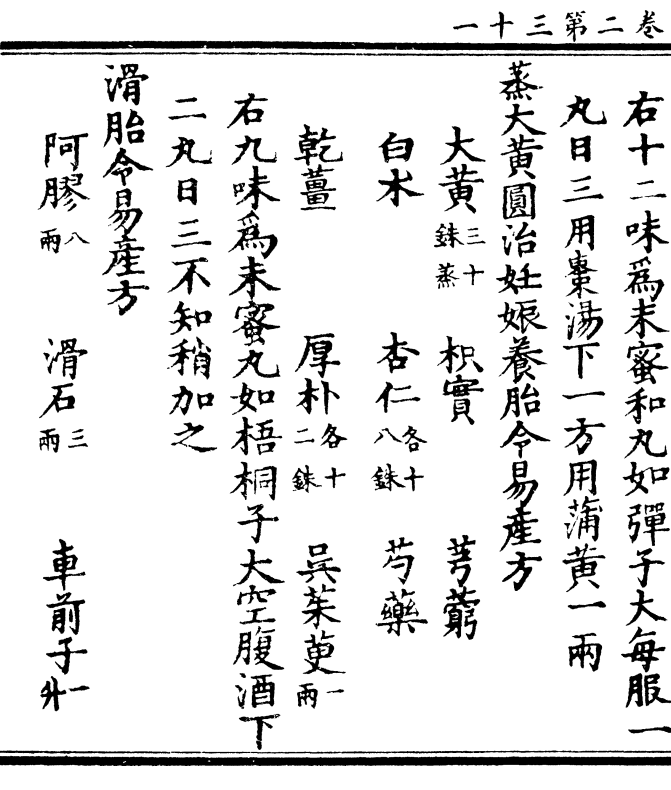 卷二第三十一
右十二味爲末蜜和丸如彈子大每服一
丸日三用棗湯下一方用蒲黃一兩
蒸大黃圓治妊娠養胎令易產方
大黃三十銖蒸 枳實 芎藭
白朮 杏仁各十八銖 芍藥
乾薑 厚朴各十二銖 吳茱萸一兩
右九味爲末蜜丸如梧桐子大空腹酒下
二丸日三不知稍加之
滑胎令易產方
阿膠八兩 滑石三兩 車前子一升